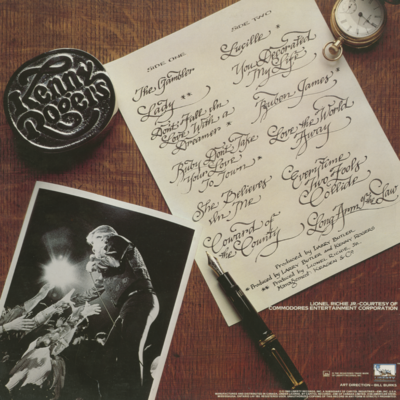 Kenny
Rogers
SIDE ONE
The Gambler
Lady **
Don't Fall In
Love With a
Dreamer *
Ruby, Don't Take
Your Love
To Town *
She Believes
In Me
Coward of
the County
SIDE TWO
Lucille *
You Decorated
My Life
Reuben James *
Love the World
Away
Every Time
Two Fools
Collide
Long Arm of the Law
Produced by Larry Butler
* Produced by Larry Butler and Kenny Rogers
** Produced by Lionel Richie, Jr.
Management: Kragen & Co.
LIONEL RICHIE JR.-COURTESY OF
COMMODORES ENTERTAINMENT CORPORATION
ART DIRECTION - BILL BURKS